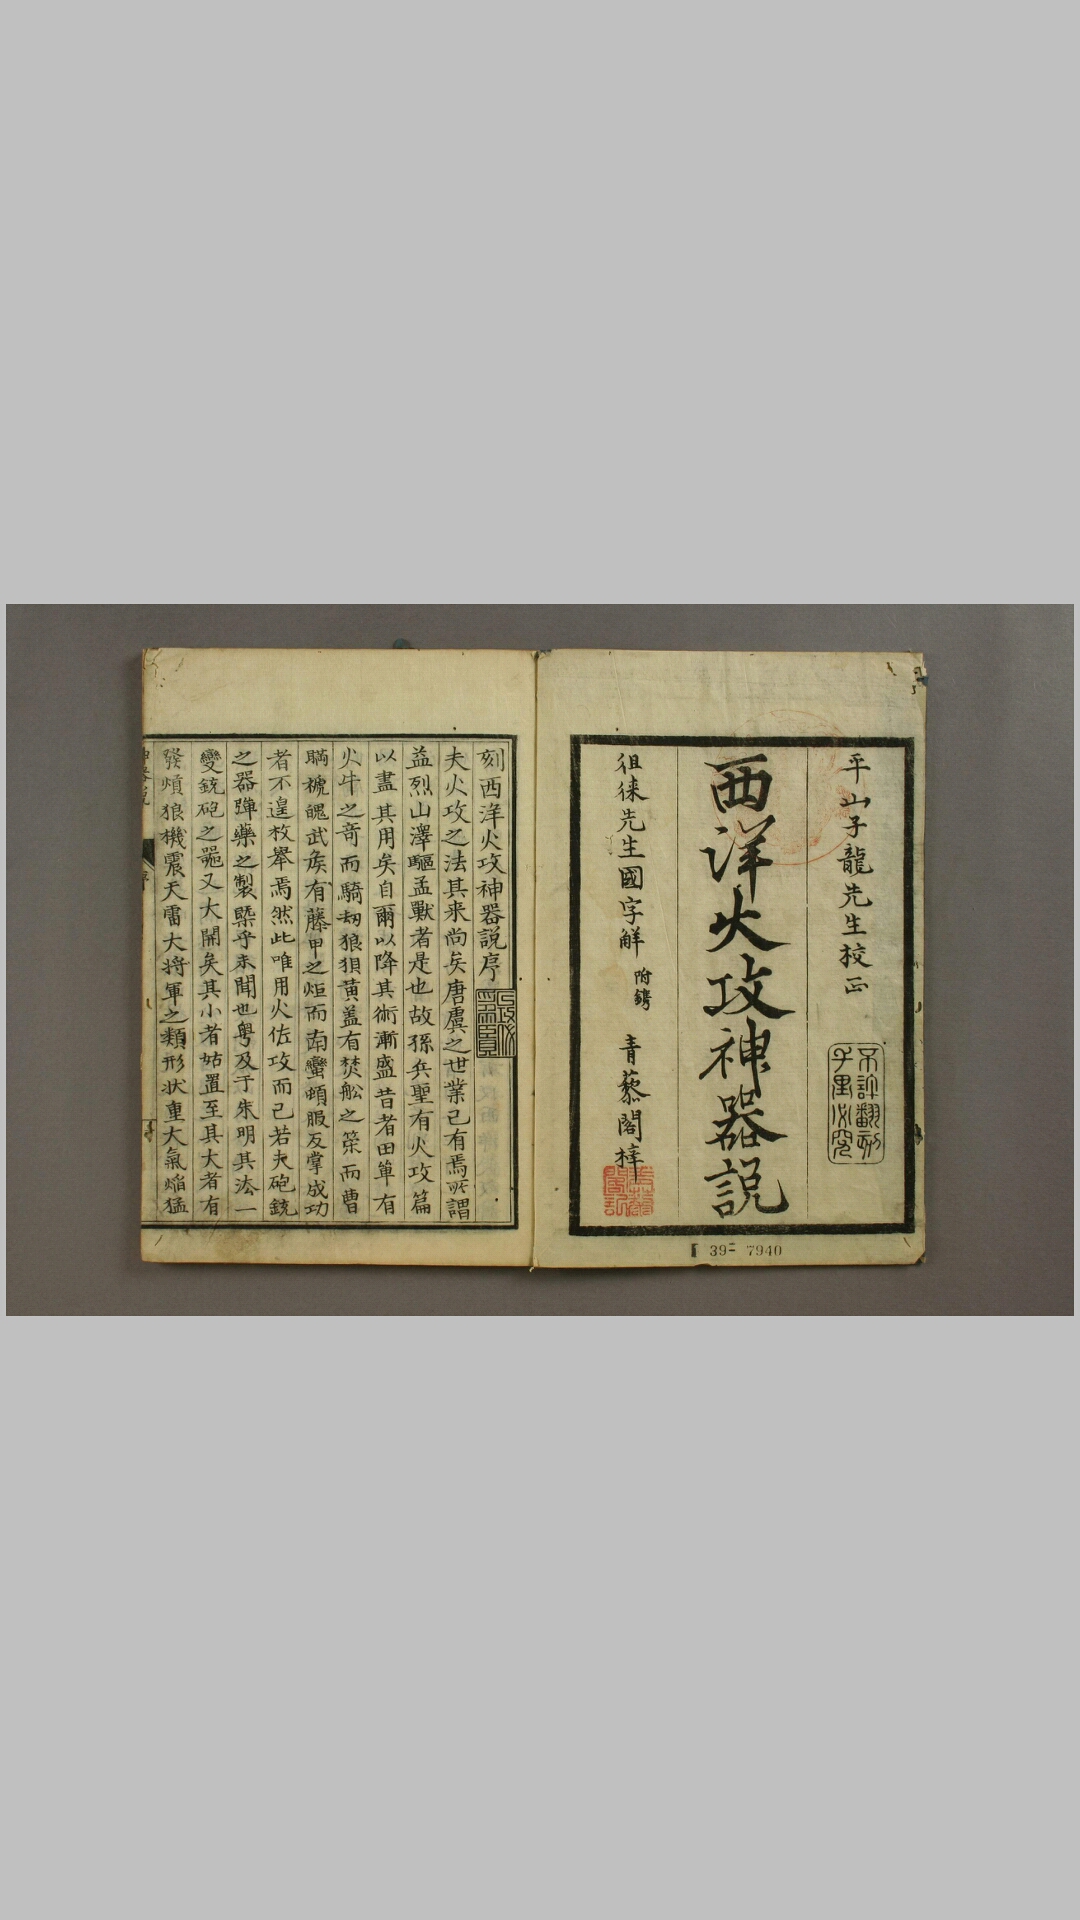 平山子龍先生校正
不許翻刻
千里必究
西洋火攻神器説
徂徠先生國字解 附鐫 青藜閣梓
39- 7940
刻西洋火攻神器説序
夫火攻之法其来尚矣唐虞之世業已有焉所謂
益烈山澤驅孟獸者是也故孫兵聖有火攻篇
以盡其用矣自爾以降其術漸盛昔者田單有
火牛之奇而騎劫狼狽黄盖有焚舩之策而曹
瞞褫魄武矦有藤甲之炬而南蠻頓服反掌成功
者不遑枚舉焉然此唯用火佐攻而已若夫砲銃
之器彈藥之製槩乎未聞也粤及于朱明其法一
變銃砲之噐又大開矣其小者姑置至其大者有
發熕狼機震天雷大将軍之類形状重大氣焰猛